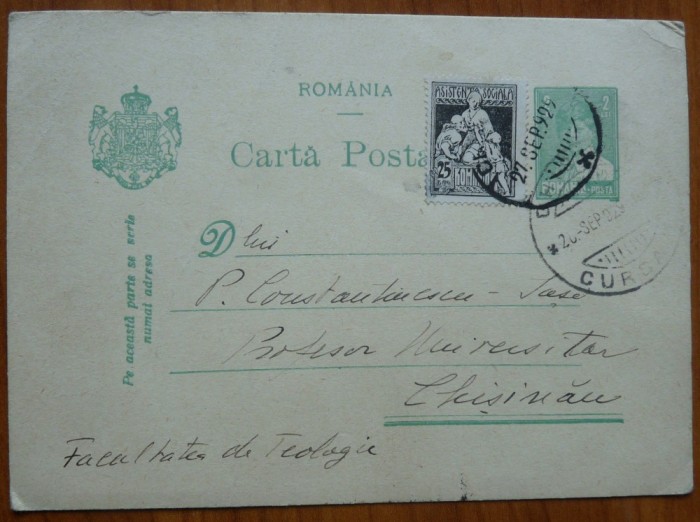 ROMÂNIA
Cartă Posta
ASISTENTA SOCIALA
25
2
27 SEP. 929
26.-SEP. 929
CURSA
Pe această parte se scrie
numai adresa
Dlui
P. Constantinescu - Iași
Profesor Universitar
Chișinău
Facultatea de Teologie